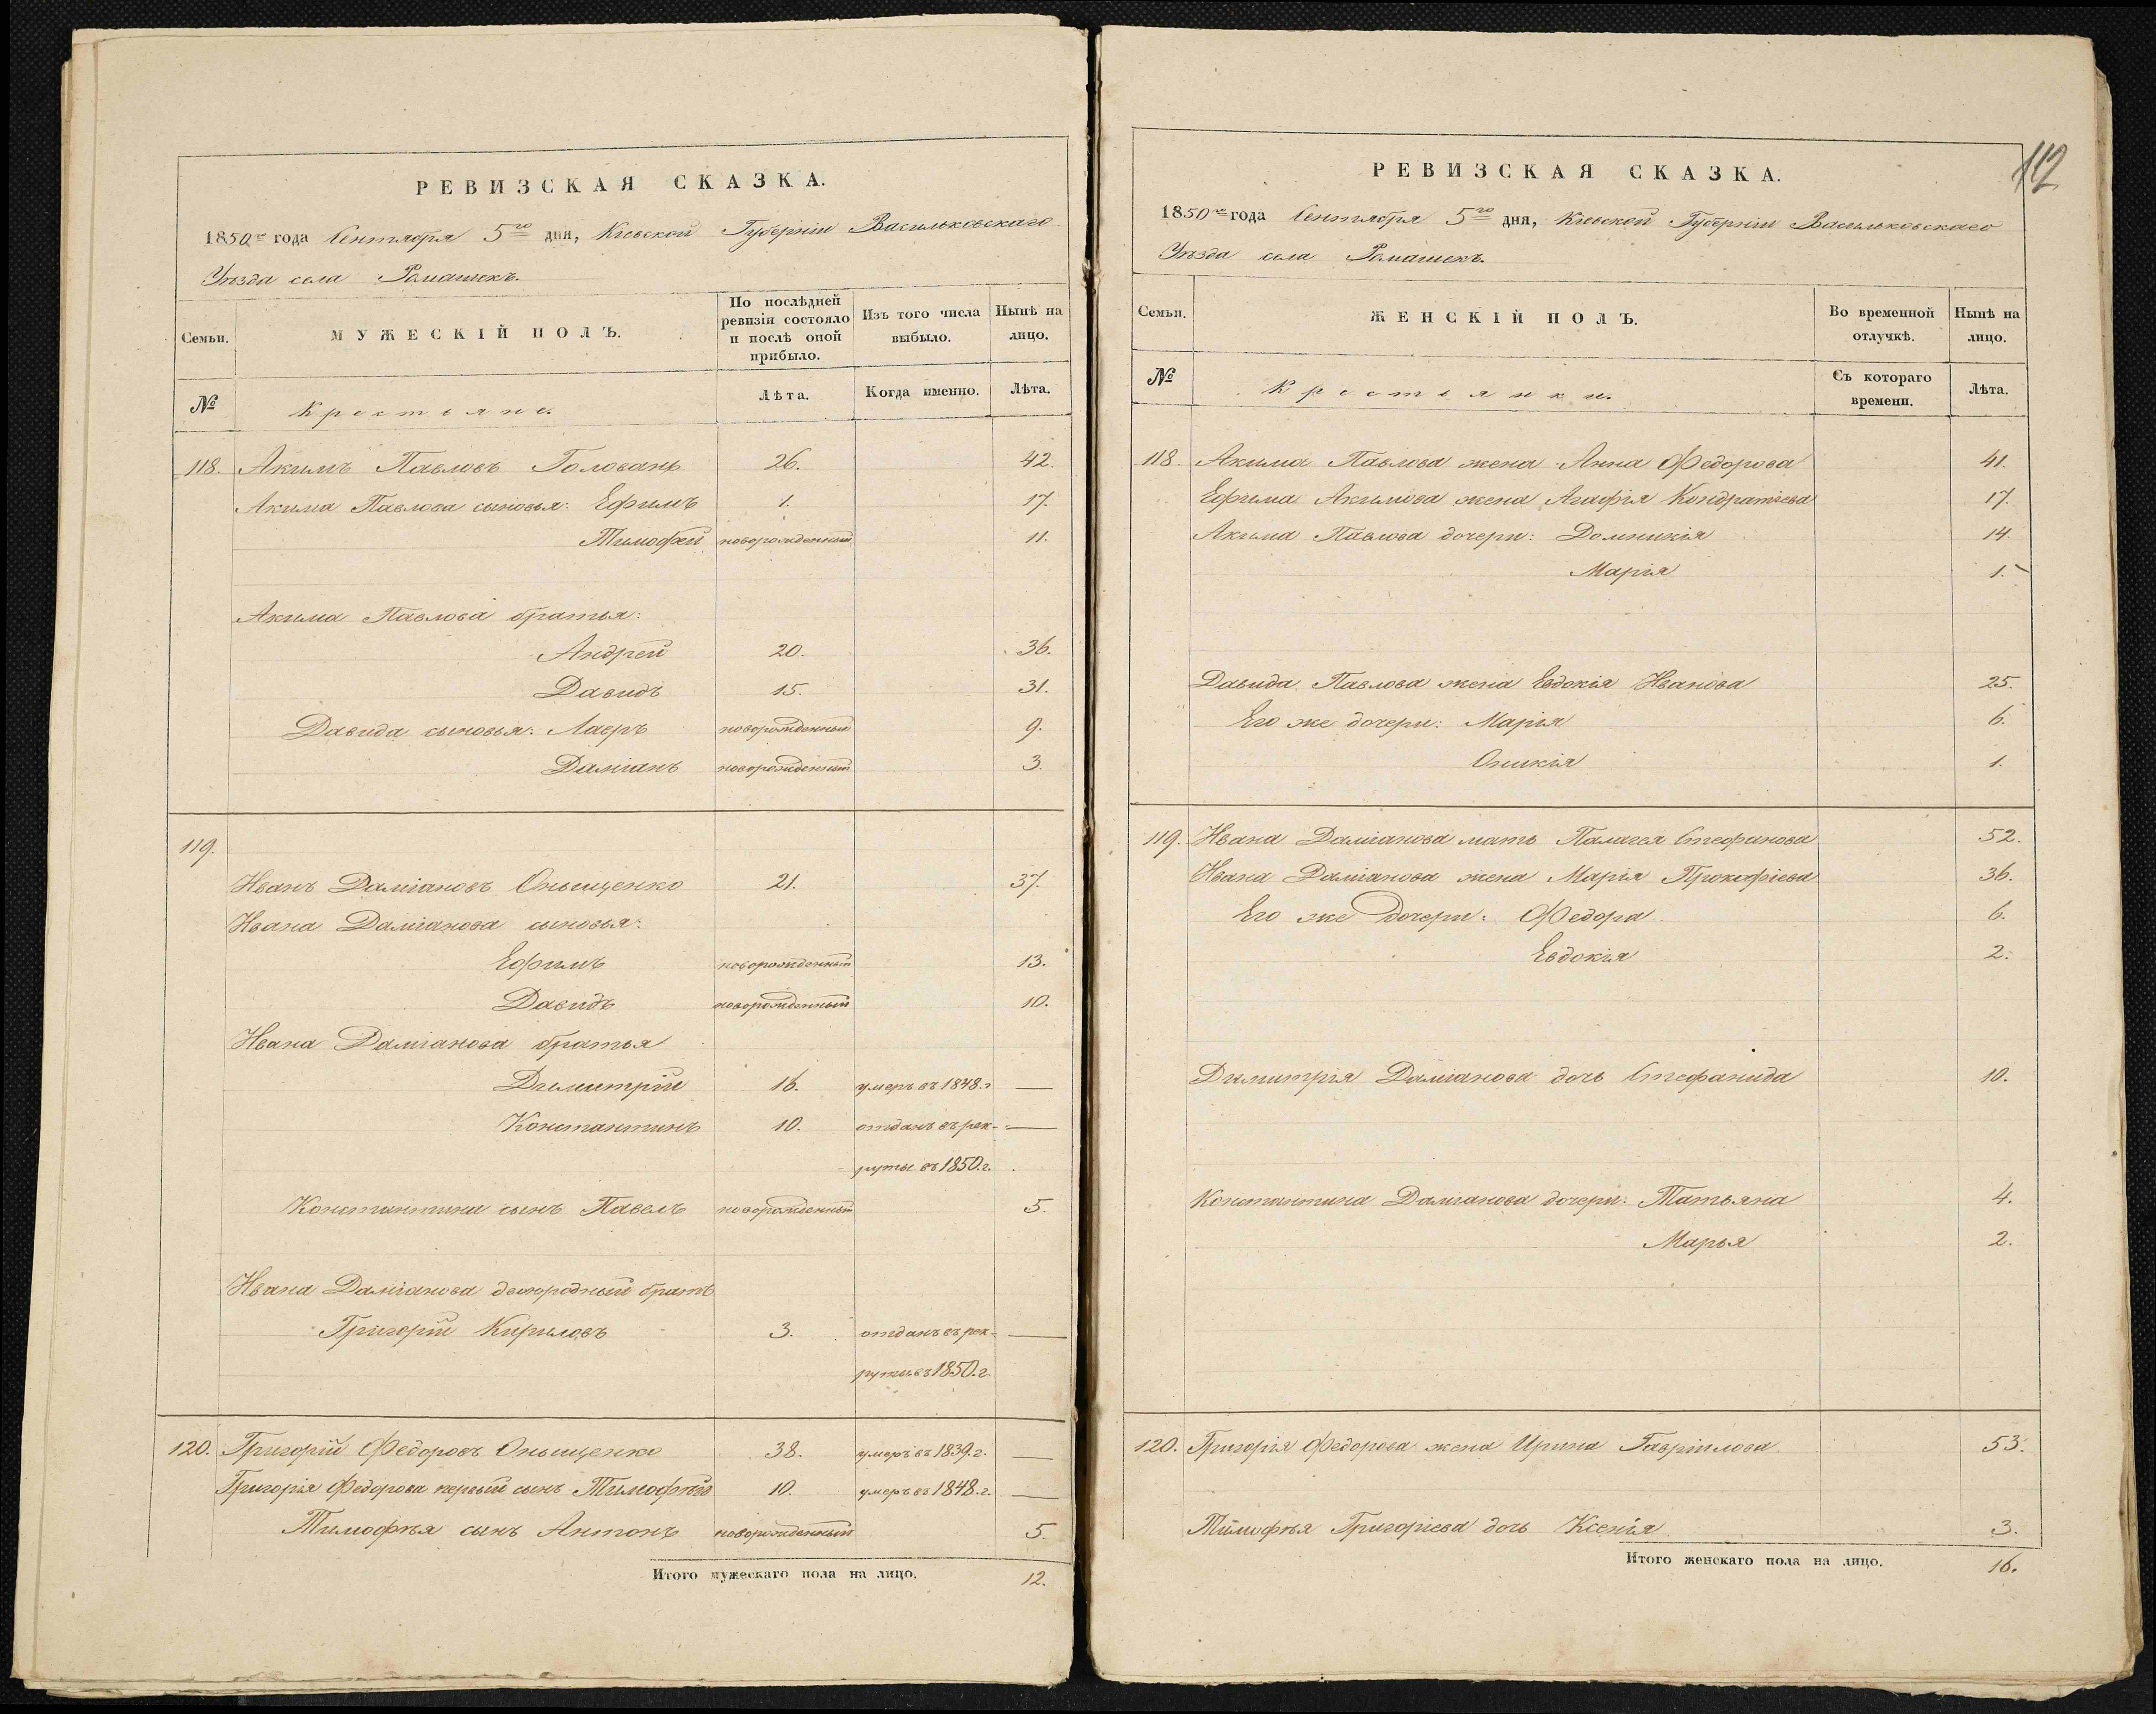 РЕВИЗСКАЯ СКАЗКА.
1850го года Сентября 5го дня, Кіевской Губерніи Васильковскаго
Уѣзда села Ромашекъ.
Семьи.
МУЖЕСКІЙ ПОЛЪ.
По послѣдней ревизіи состояло и послѣ оной прибыло.
Изъ того числа выбыло.
Нынѣ на лицо.
№
Крестьяне.
Лѣта.
Когда именно.
Лѣта.
118. Акимъ Павловъ Головань 26. 42.
Акима Павлова сыновья: Ефимъ 1. 17.
Тимофей новорожденный 11.
Акима Павлова братья:
Андрей 20. 36.
Давидъ 15. 31.
Давида сыновья: Лавръ новорожденный 9.
Даміанъ новорожденный 3.
119.
Иванъ Даміановъ Оныщенко 21. 37.
Ивана Даміанова сыновья:
Ефимъ новорожденный 13.
Давидъ новорожденный 10.
Ивана Даміанова братья
Димитрій 16. умеръ въ 1848.г —
Константинъ 10. отданъ въ рек- —
руты въ 1850.г.
Константина сынъ Павелъ новорожденный 5.
Ивана Даміанова двоюродный братъ
Григорій Кириловъ 3. отданъ въ рек- —
руты въ 1850.г.
120. Григорій Федоровъ Оныщенко 38. умеръ въ 1839.г. —
Григорія Федорова первый сынъ Тимофѣй 10. умеръ въ 1848.г. —
Тимофѣя сынъ Антонъ новорожденный 5.
Итого мужескаго пола на лицо. 12.
112
РЕВИЗСКАЯ СКАЗКА.
1850го года Сентября 5го дня, Кіевской Губерніи Васильковскаго
Уѣзда села Ромашекъ.
Семьи.
ЖЕНСКІЙ ПОЛЪ.
Во временной отлучкѣ.
Нынѣ на лицо.
№
Крестьянки.
Съ котораго времени.
Лѣта.
118. Акима Павлова жена Анна Федорова 41.
Ефима Акимова жена Агафія Кондратіева 17.
Акима Павлова дочери: Домникія 14.
Марія 1.
Давида Павлова жена Евдокія Иванова 25.
Его же дочери: Марія 6.
Оникія 1.
119. Ивана Даміанова мать Палагея Стефанова 52.
Ивана Даміанова жена Марія Прокофіева 36.
Его же дочери: Федора 6.
Евдокія 2.
Димитрія Даміанова дочь Стефанида 10.
Константина Даміанова дочери: Татьяна 4.
Марья 2.
120. Григорія Федорова жена Ирина Гавріилова 53.
Тимофѣя Григоріева дочь Ксенія 3.
Итого женскаго пола на лицо. 16.